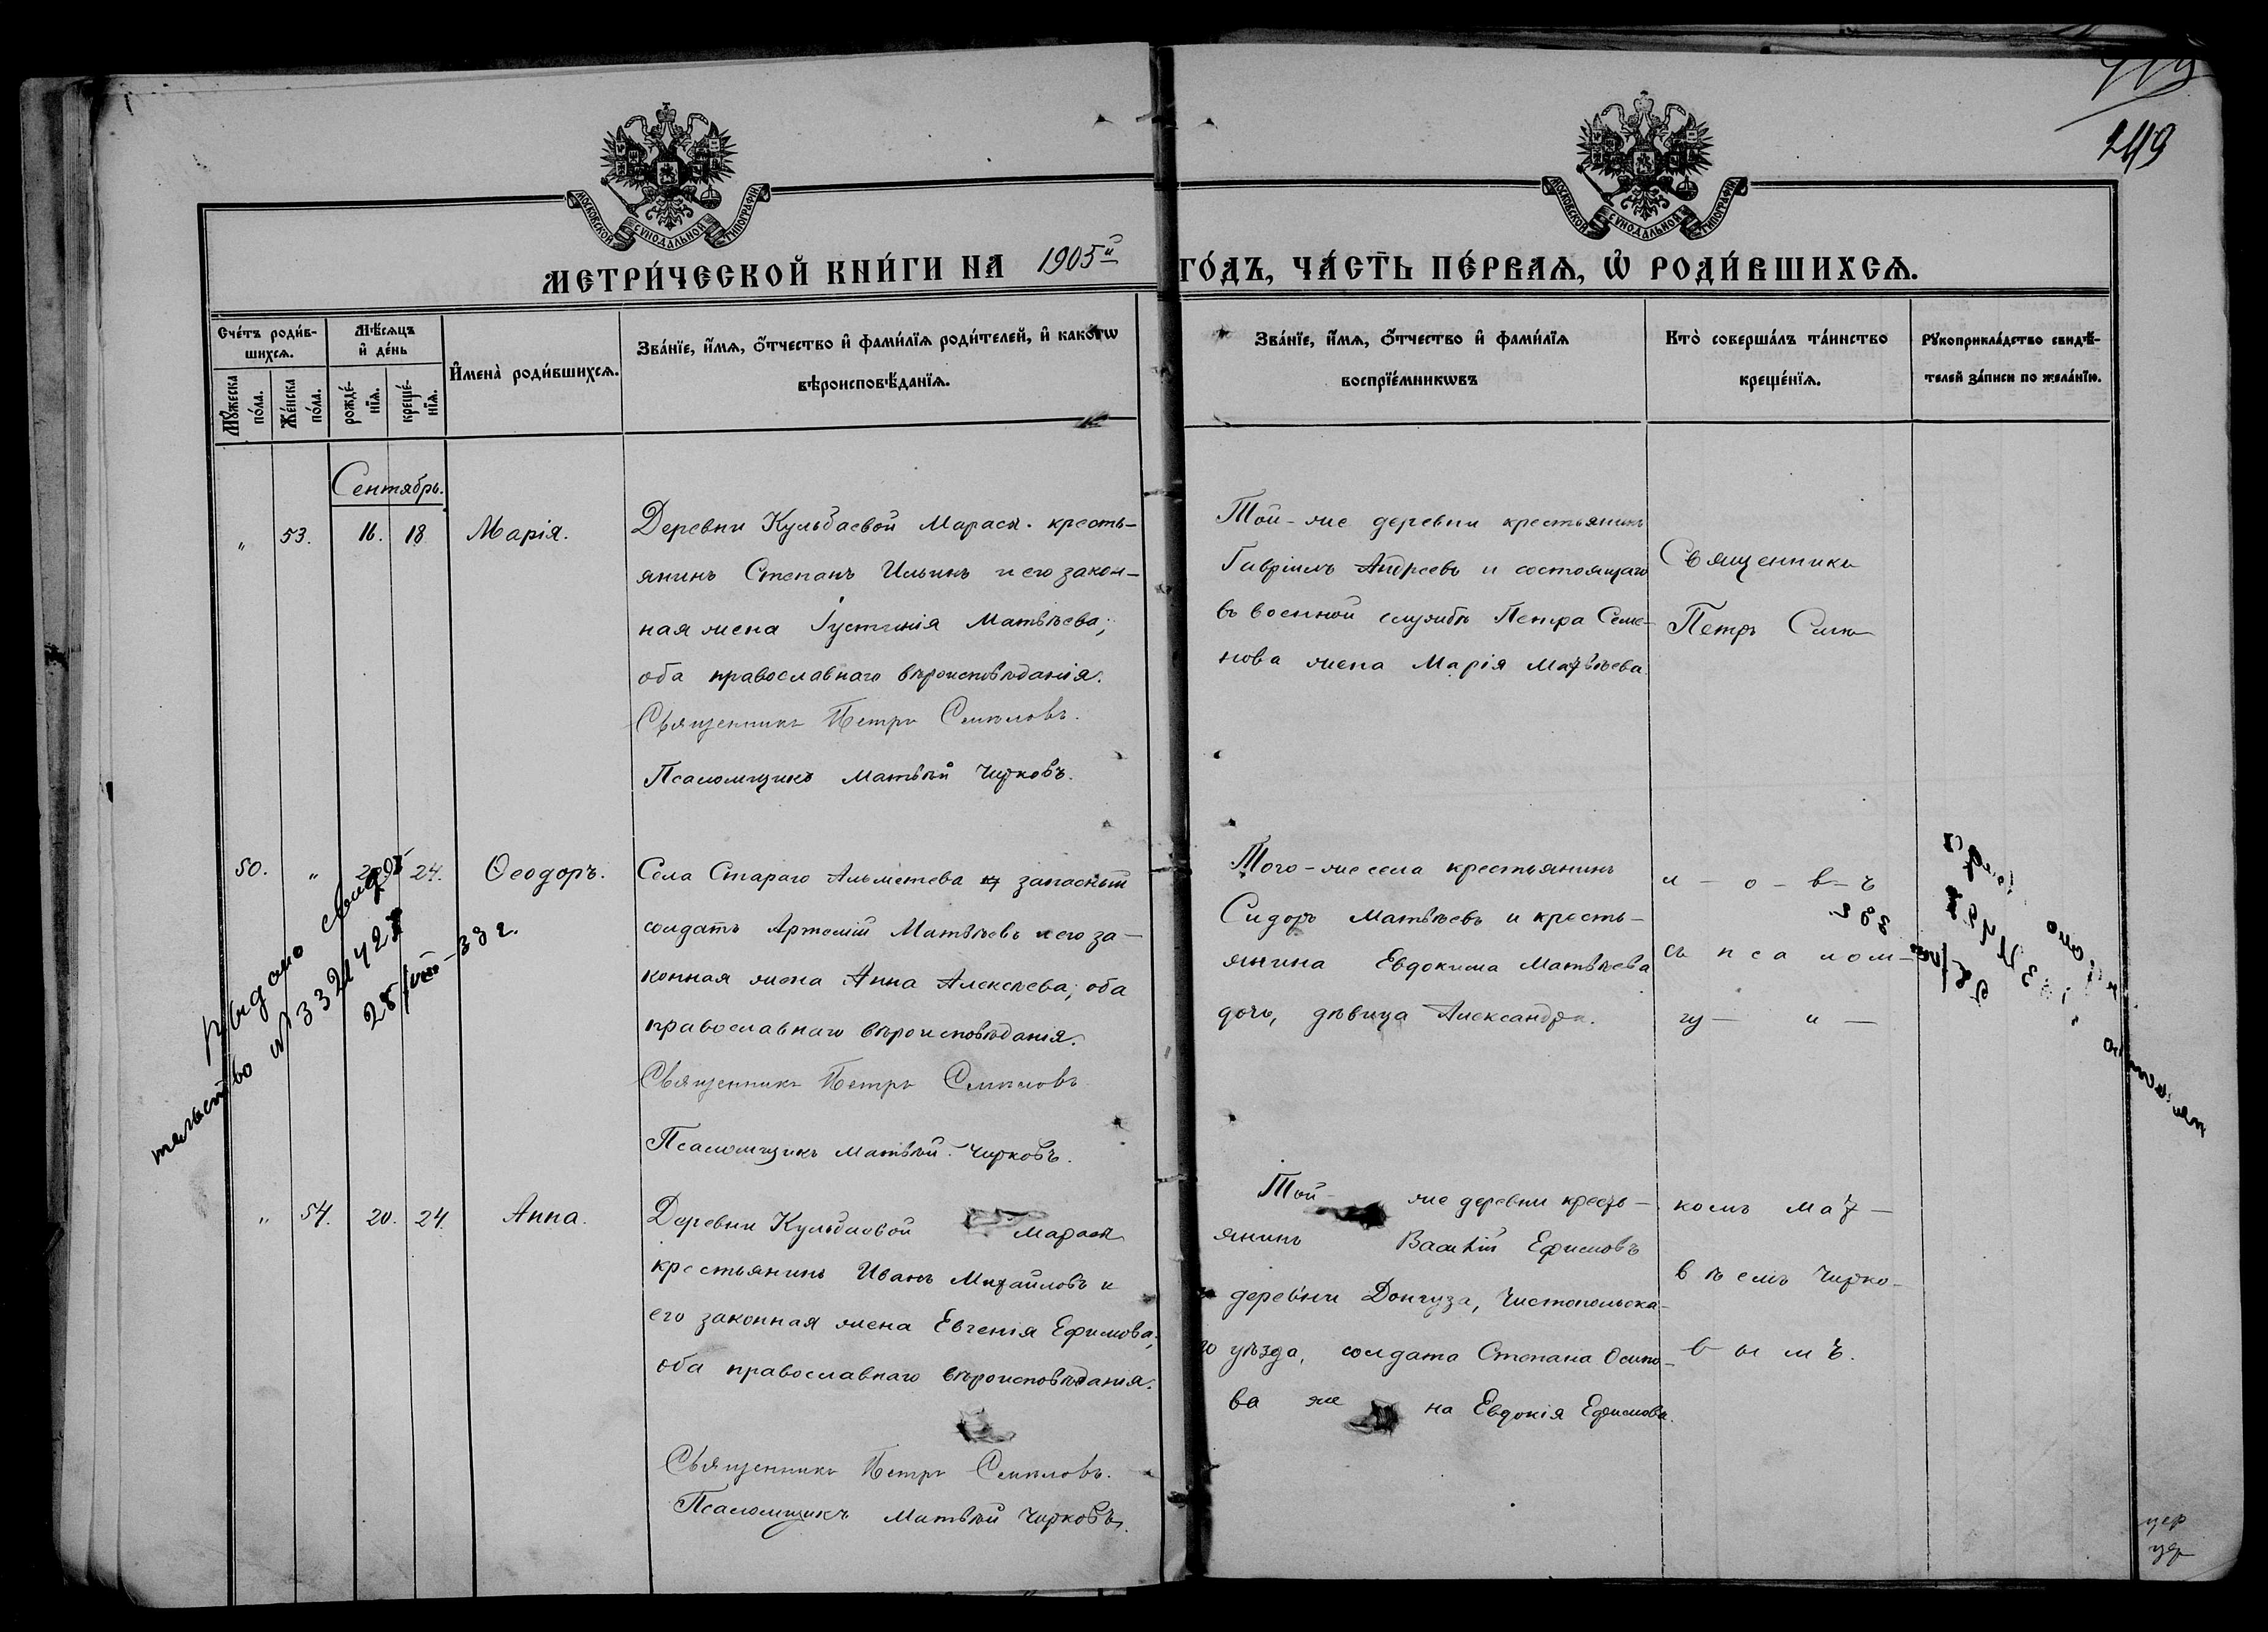 119
249
МОСКОВСКОЙ СѴНОДАЛЬНОЙ ТИПОГРАФІИ
МОСКОВСКОЙ СѴНОДАЛЬНОЙ ТИПОГРАФІИ
МЕТРИ́ЧЕСКОЙ КНИ́ГИ НА 1905й ГО́ДЪ, ЧА́СТЬ ПЕ́РВАѦ, Ѡ҆ РОДИ́ВШИХСѦ.
Сче́тъ роди́в-
шихсѧ.
Мꙋ́жеска
по́ла.
Же́нска
по́ла.
Мѣ́сѧцъ
и҆ де́нь
рожде́-
нїѧ.
креще́-
нїѧ.
И҆мена̀ роди́вшихсѧ.
Зва́нїе, и҆́мѧ, ѻ҆́тчество и҆ фами́лїѧ роди́телей, и҆ како́гѡ
вѣроисповѣ́данїѧ.
Зва́нїе, и҆́мѧ, ѻ҆́тчество и҆ фами́лїѧ
воспрїе́мникѡвъ
Кто̀ соверша́лъ та́инство
креще́нїѧ.
Рꙋкоприкла́дство свидѣ́-
телей за́писи по жела́нїю.
Сентябрь.
„ 53. 16. 18. Марія.
Деревни Кульбаевой Мараси. кресть-
янинъ Степанъ Ильинъ и его закон-
ная жена Іустинія Матвѣева;
оба православнаго вѣроисповѣданія.
Священникъ Петръ Смѣловъ.
Псаломщикъ Матвѣй Чирковъ.
Той-же деревни крестьянинъ
Гавріилъ Андреевъ и состоящаго
въ военной службѣ Петра Семе-
нова жена Марія Матвѣева
Священникъ
Петръ Смѣ-
50. „ 24. Ѳеодоръ.
Села Стараго Альметева запасный
солдатъ Артемій Матвѣевъ и его за-
конная жена Анна Алексѣева; оба
православнаго вѣроисповѣданія.
Священникъ Петръ Смѣловъ
Псаломщикъ Матвѣй Чирковъ.
Того-же села крестьянинъ
Сидоръ Матвѣевъ и кресть-
янина Евдокима Матвѣева
дочь, дѣвица Александра.
л - о - в - ъ
съ псалом-
щи-
Выдано свидѣ
тельство
28/VIII-33 г.
„ 54. 20. 24. Анна.
Деревни Кульбаевой Мараси
крестьянинъ Иванъ Михайловъ и
его законная жена Евгенія Ефимова;
оба православнаго вѣроисповѣданія.
Священникъ Петръ Смѣловъ.
Псаломщикъ Матвѣй Чирковъ.
Той- же деревни кресть-
янинъ Василій Ефимовъ
и деревни Донгуза, Чистопольска-
го уѣзда, солдата Степана Осипо-
ва же на Евдокія Ефимова.
комъ Мат-
вѣемъ Чирко-
вымъ.